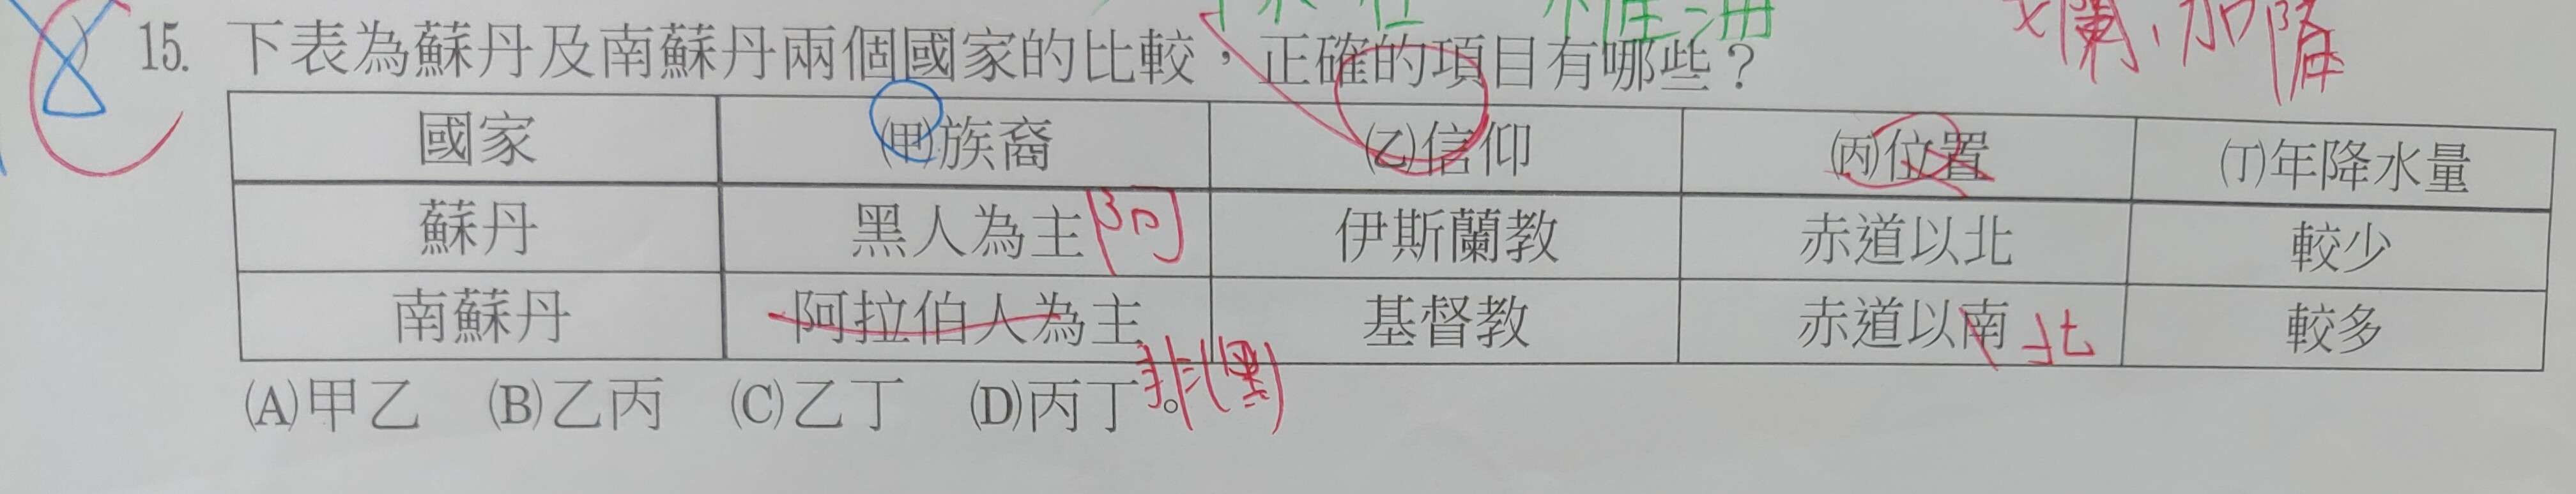 欄、加降
15. 下表為蘇丹及南蘇丹兩個國家的比較，正確的項目有哪些？
國家 ㈙族裔 ㈚信仰 ㈛位置 ㈜年降水量
蘇丹 黑人為主 阿 伊斯蘭教 赤道以北 較少
南蘇丹 阿拉伯人為主 基督教 赤道以南 北 較多
非(黑)
(A)甲乙 (B)乙丙 (C)乙丁 (D)丙丁。